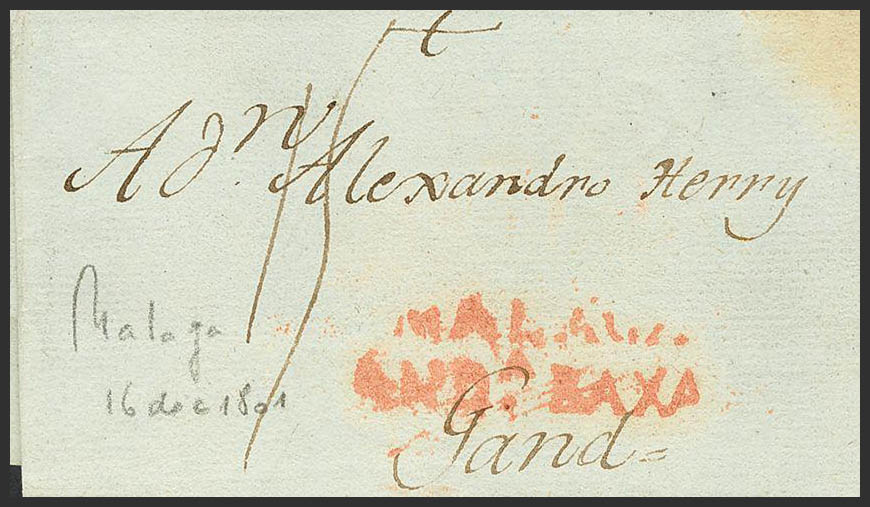 A Dn. Alexandro Herry
Malaga
16 dec 1801
MALAGA.
ANDA. BAXA
Gand=